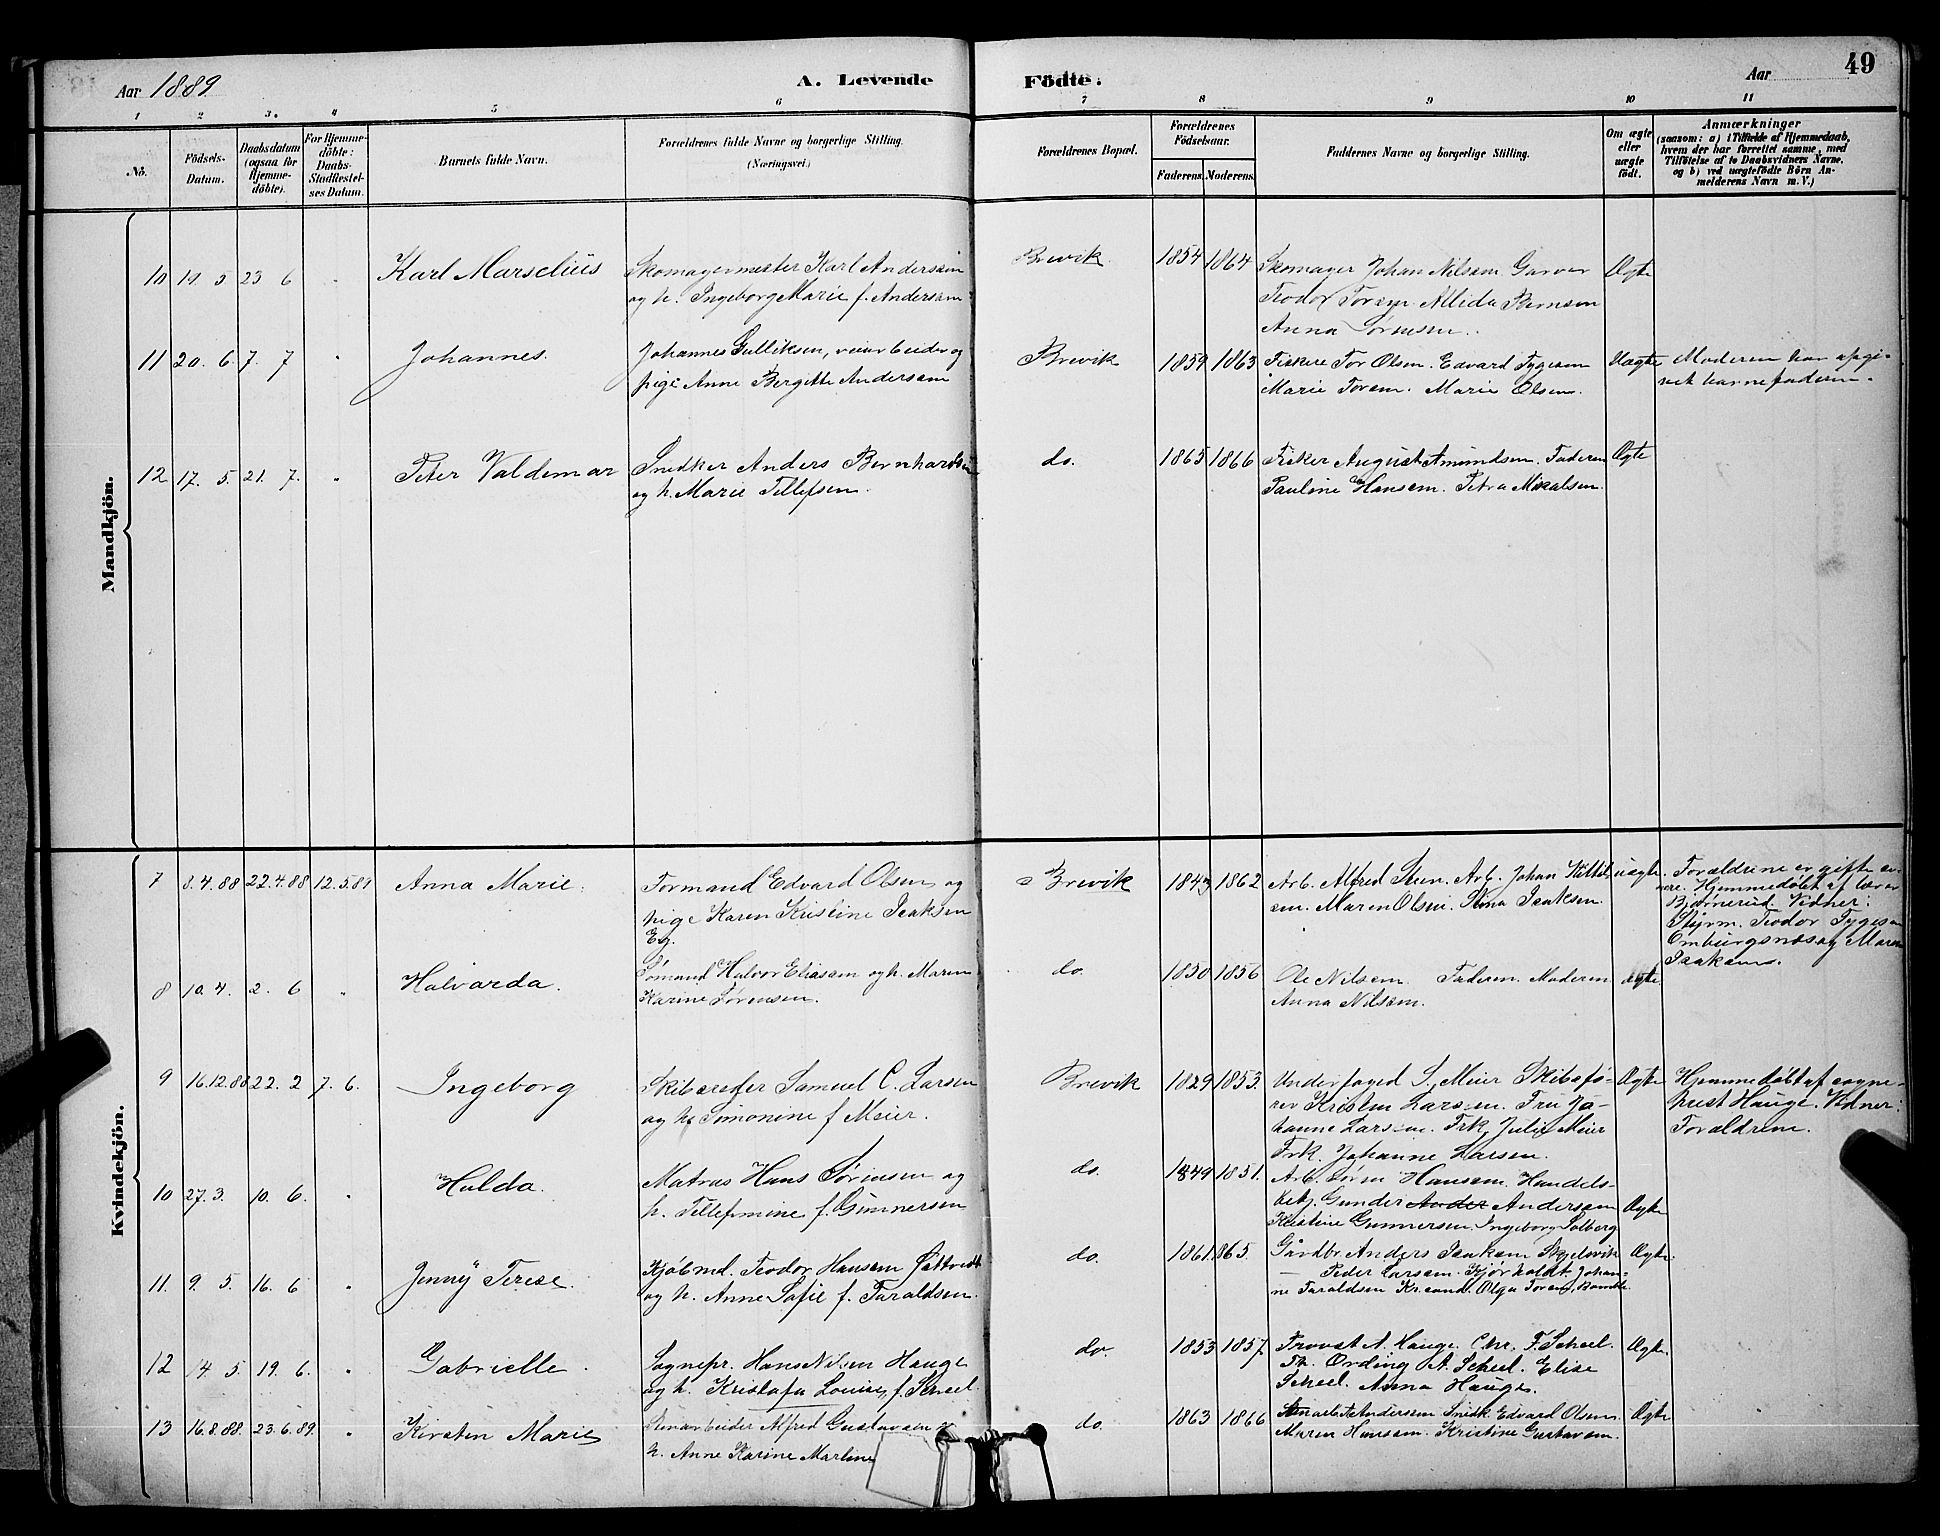 Aar 1889
A. Levende Födte.
Aar
49
1 2 3. 4 5 6 7 8 9 10 11
No.
Födsels-
Datum.
Daabsdatum
(ogsaa for
Hjemme-
döbte).
For Hjemme-
döbte:
Daabs-
Stadfæstel-
ses Datum.
Barnets fulde Navn.
Forældrenes fulde Navne og borgerlige Stilling.
(Næringsvei.)
Forældrenes Bopæl.
Forældrenes
Födselsaar.
Faderens. Moderens.
Faddernes Navne og borgerlige Stilling.
Om ægte
eller
uægte
födt.
Anmærkninger
(saasom: a) i Tilfælde af Hjemmedaab,
hvem der har forrettet samme, med
Tilföielse af to Daabsvidners Navne,
og b) ved uægtefödte Börn An-
melderens Navn m. V.)
Mandkjön.
10 19. 3 23 6 " Karl Marselius Skomagermester Karl Andersen Brevik 1854 1864 Skomager Johan Nilsen Garver Ægte
og h. Ingeborg Marie f. Andersen Teodor Alida Bernsen
Anna Sørensen.
11 20. 6 7. 7 " Johannes. Johannes Gulliksen, og Brevik 1859 1863 Fiskere Tor Olsen. Edvard Tygesen Uægte Moderen har opgi-
pige Anne Bergitte Andersen Marie Torsen. Marie Olsen. vet barnefaderen.
12 17. 5. 21. 7. " Peter Valdemar Snedker Anders Bernhardsen do. 1865 1866 Fisker August Amundsen. Faderen Ægte
og h. Marie Tellefsen. Pauline Hansen. Petra Mikalsen.
Kvindekjön.
7 8.4.88 22.4.88 12.5.89 Anna Marie. Formand Edvard Olsen og Brevik 1843 1862 Arb. Alfred Steen. Arb. Johan Kittil- uægte. Forældrene er gifte se-
pige Karen Kristine Isaksen sen. Maren Olsen. Isaksen. nere. Hjemmedøbt af lærer
Eg. Bjørnerud. Vidner:
Styrm. Teodor Tygesen
og Maren
Isaksen.
8 10. 4. 2. 6 " Halvarda. Sømand Halvor Eliasen og h. Maren do. 1850 1856 Ole Nilsen. Faderen. Moderen ægte
Karine Sørensen. Anna Nilsen.
9 16.12.88 22. 2 7. 6. Ingeborg Skibsreder Samuel C. Larsen Brevik 1829 1853. Underfoged S. Meier Skibsfø- Ægte Hjemmedøbt af sogne-
og h. Simonine f Meier. rer Kristen Larsen. Fru Jo- prest Hauge. Vidner:
hanne Larsen. Frk. Julie Meier Forældrene.
Frk. Johanne Larsen.
10 27. 3. 10. 6. " Hulda. Matros Hans Sørensen og do. 1849 1851. Arb. Søren Hansen. Handels-
h. Tellefmine f. Gunnersen betj. Gunder Ander Andersen Ægte
Kristine Gunnersen. Ingeborg Solberg
11. 9. 5. 16. 6 " Jenny Terese. Kjøbmd. Teodor Hansen Østvedt do. 1861. 1865. Gårdbr. Anders Isaksen Skjelsvik Ægte.
og h. Anne Sofie f. Taraldsen. — Peder Larsen. Kjørholdt. Johan-
ne Taraldsen Kr.sand. Olga Torsen, Bamble.
12 14. 5. 19. 6. " Gabrielle. Sognepr. Hans Nilsen Hauge do. 1853 1857. Provst A. Hauge. Chr. F. Scheel. Ægte.
og h. Kristofa Louise f. Scheel. Th. Ording A. Scheel. Elise
Scheel. Anna Hauge.
13 16.8.88. 23.6.89. " Kirsten Marie Alfred Gustavsen do. 1863 1866 Andersen Snedk. Edvard Olsen. Ægte
h. Anne Karine Maren Hansen. Kristine Gustavsen.